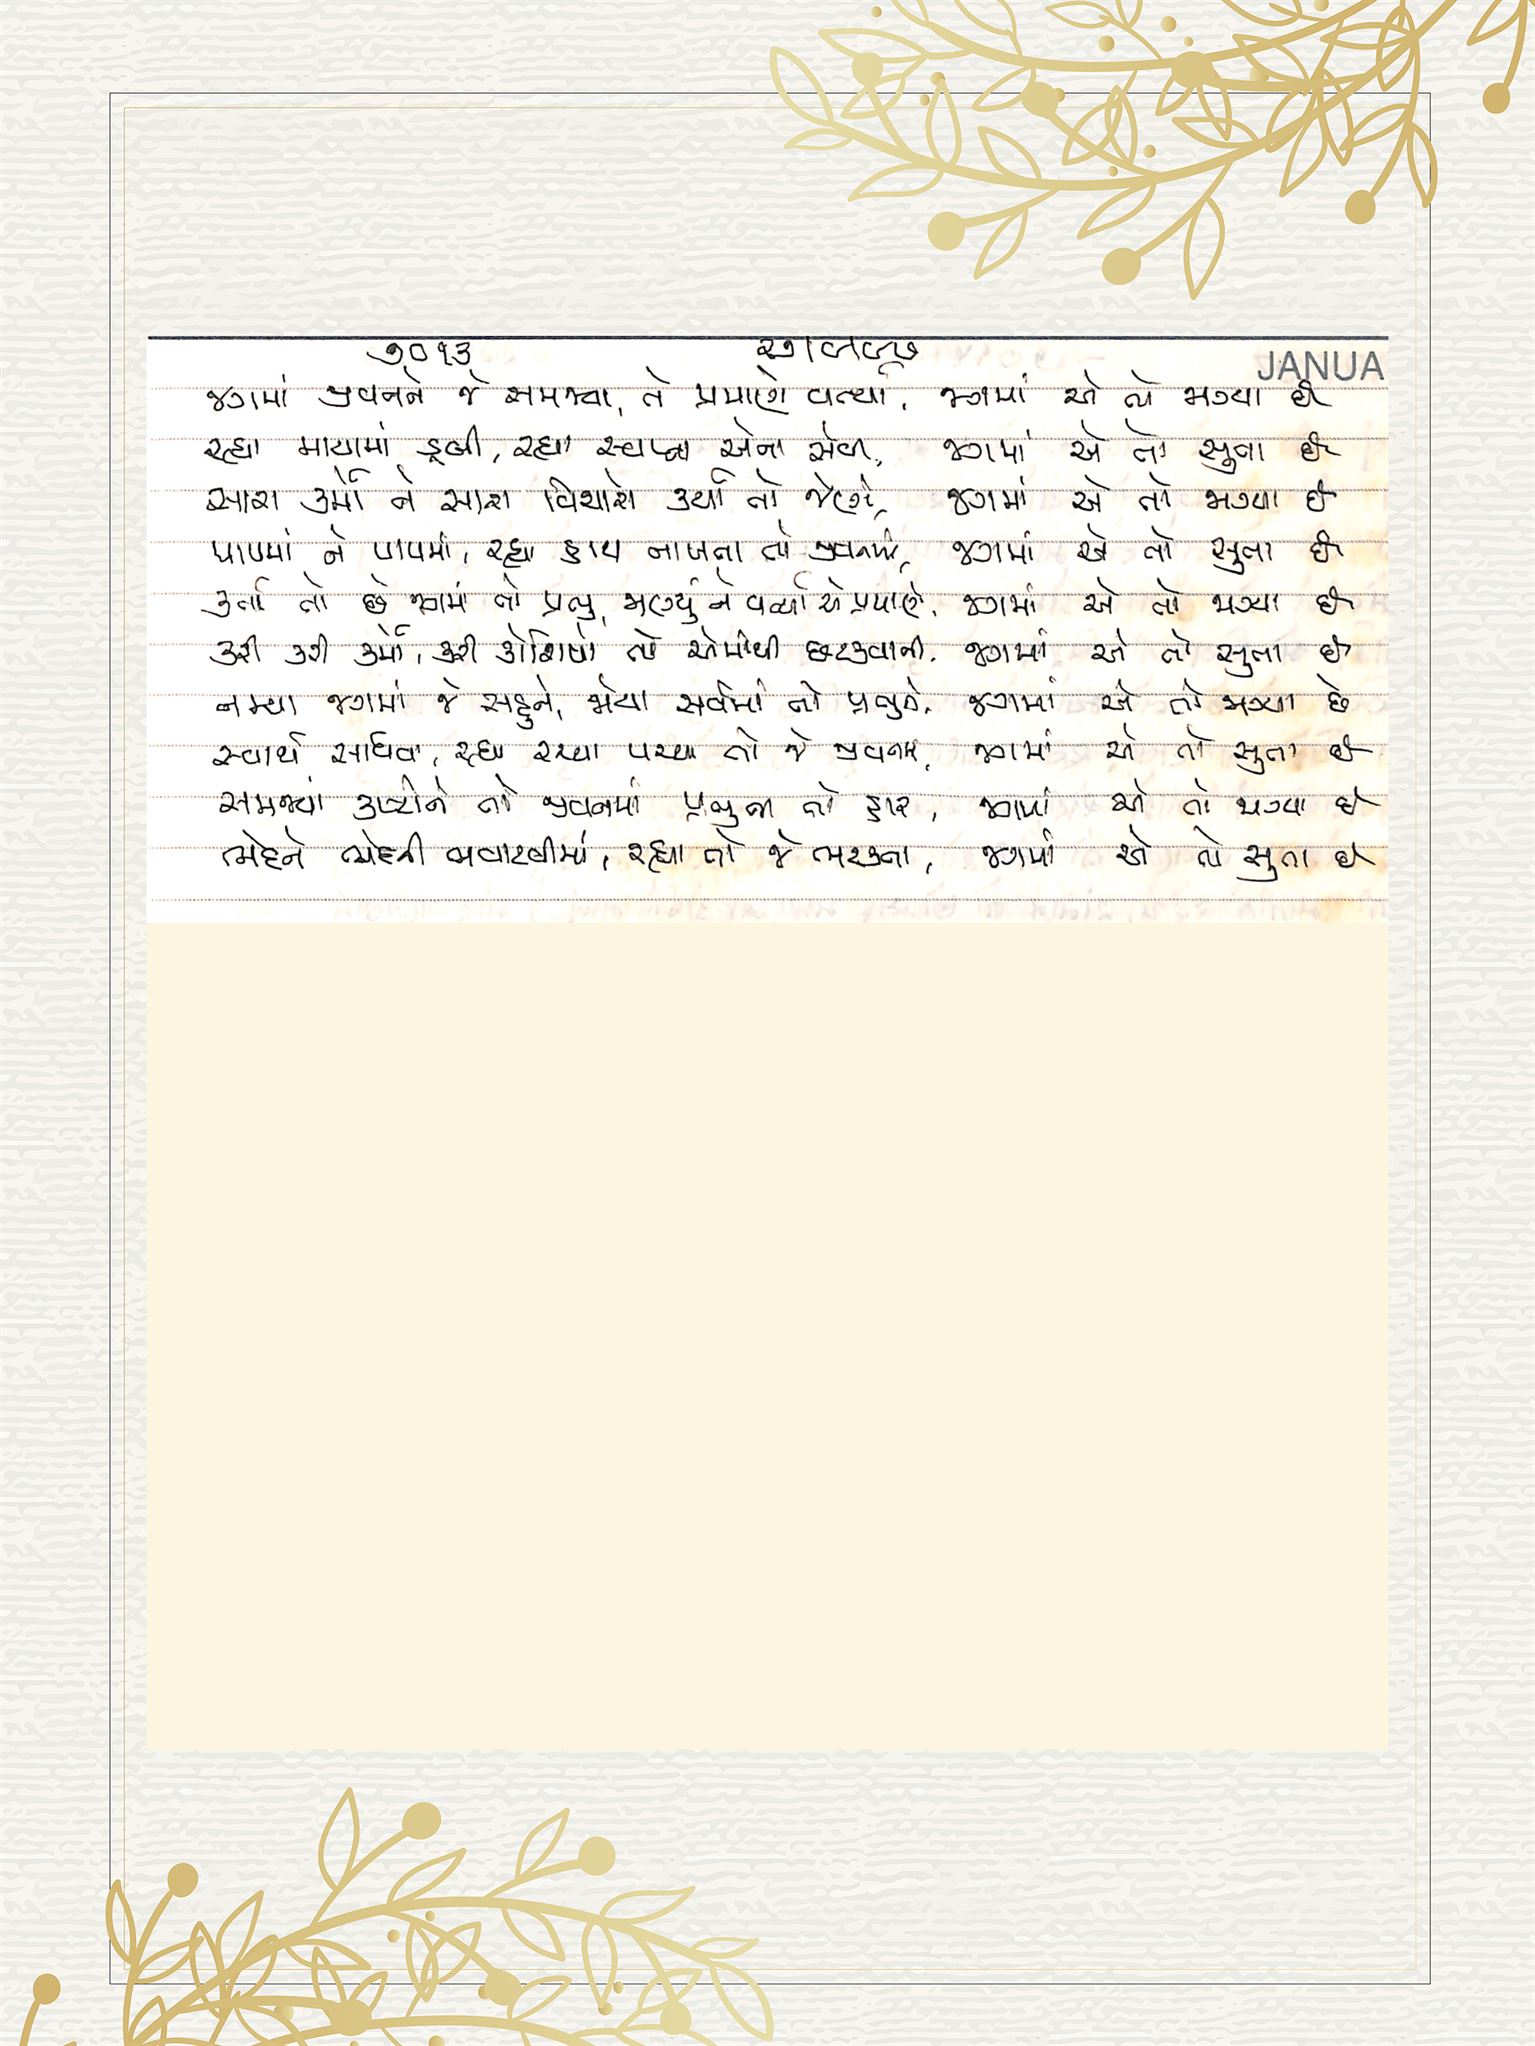 ૭૦૧૩
JANUA
જગમાં જીવનને જે સમજ્યા, તે પ્રમાણે વર્ત્યા, જગમાં એ તો જાગ્યા છે
રહ્યા માયામાં ડૂબી, રહ્યા સ્વપ્ના એના સેવી, જગમાં એ તો સુતા છે
સારા કર્મો ને સારા વિચારો કર્યા તો જેણે, જગમાં એ તો જાગ્યા છે
પાપમાં ને પાપમાં, રહ્યા હાથ નાખતા તો જીવનમાં, જગમાં એ તો સુતા છે
કર્તા તો છે જગમાં તો પ્રભુ, જાણ્યું ને વર્ત્યા એ પ્રમાણે, જગમાં એ તો જાગ્યા છે
કરી કરી કર્મો, કરી કોશિશો તો એમાંથી છટકવાની, જગમાં એ તો સુતા છે
નમ્યા જગમાં જે સહુને, જોયા સર્વમાં તો પ્રભુને, જગમાં એ તો જાગ્યા છે
સ્વાર્થ સાધવા, રહ્યા રચ્યા પચ્યા તો જે જીવનમાં, જગમાં એ તો સુતા છે
સમજ્યાં કષ્ટોને તો જીવનમાં પ્રભુના તો હાર, જગમાં એ તો જાગ્યા છે
ભેદને ભેદની ભવાટવીમાં, રહ્યા તો જે ભટકતા, જગમાં એ તો સુતા છે